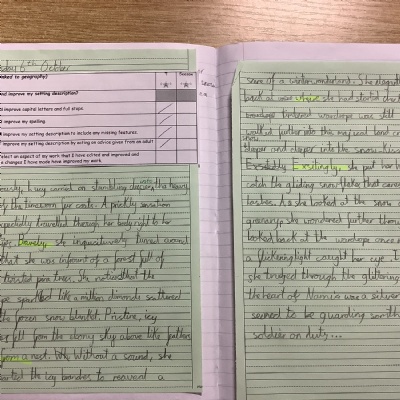 sday 6th October
linked to geography)
and improve my setting description?
improve capital letters and full stops.
improve my spelling.
improve my setting description to include any missing features.
improve my setting description by acting on advice given from an adult
select an aspect of my work that I have edited and improved and
changes I have made have improved my work.
ously, Lucy carried on stumbling
of the timeworn fur coats. A prickly sensation
travelled through her body right to her
ips. Bravely, she inquisitively turned around
that she was infront of a forest full of
twisted pine trees. She noticed that the
sparkled like a million dimonds scattered
the frozen snow blanket. Pristine, icy
fell from the ebony sky above like feathers
from a nest. Without a sound, she
the icy branches to reaveal a
scene of a winter wonderland. She
back at was where she had started
wardrope was still
walked further into this magical land
deeper and deeper into the snow.
Exsitedly Exsitingly, she put her
catch the glinting snowflakes that
lashes. As she looked at the snow
greenery, she wondered further
looked back at the wardrope once
a glistening light caught her eye.
she trudged through the glittering
the heart of Narnia was a silver
seemed to be guarding
soldier on duty...